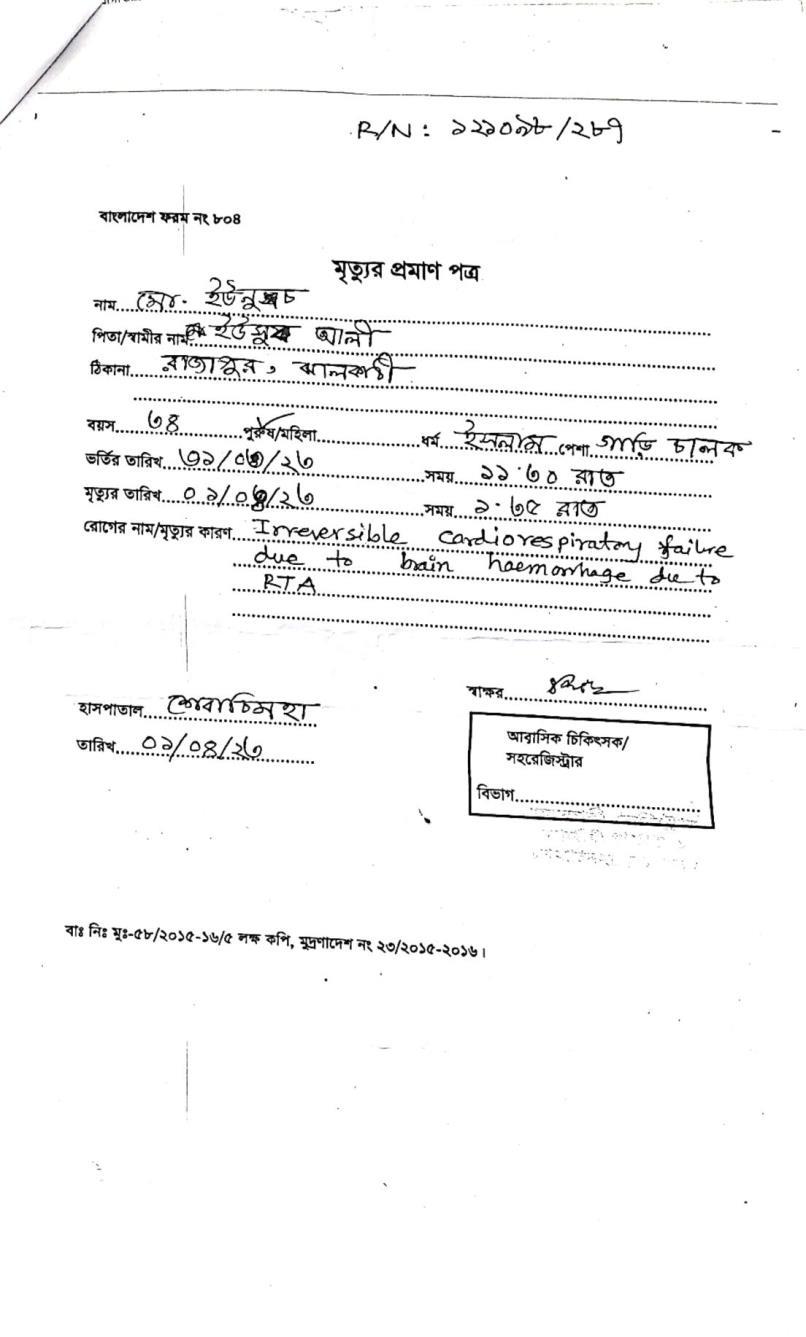 R/N : ১২১০৯৮/২৮৭
বাংলাদেশ ফরম নং ৮০৪
মৃত্যুর প্রমাণ পত্র
নাম....মো.
পিতা/স্বামীর নাম আলী
ঠিকানা.....রাজাপুর, ঝালকাঠী
বয়স.....৩৪.....পুরুষ/মহিলা.....ধর্ম....ইসলাম...পেশা..গাড়ি চালক
ভর্তির তারিখ...৩১/০৩/২৩.....সময়....১১.৩০ রাত
মৃত্যুর তারিখ....০১/০৪/২৩.....সময়....১.৩৫ রাত
রোগের নাম/মৃত্যুর কারণ....Irreversible cardiorespiratory failure
due to brain haemorrhage due to
RTA
স্বাক্ষর.....
হাসপাতাল....শেবাচিমহা
তারিখ.....০১/০৪/২৩.....
আবাসিক চিকিৎসক/
সহরেজিস্ট্রার
বিভাগ.....
বাঃ নিঃ মুঃ-৫৮/২০১৫-১৬/৫ লক্ষ কপি, মুদ্রণাদেশ নং ২৩/২০১৫-২০১৬।